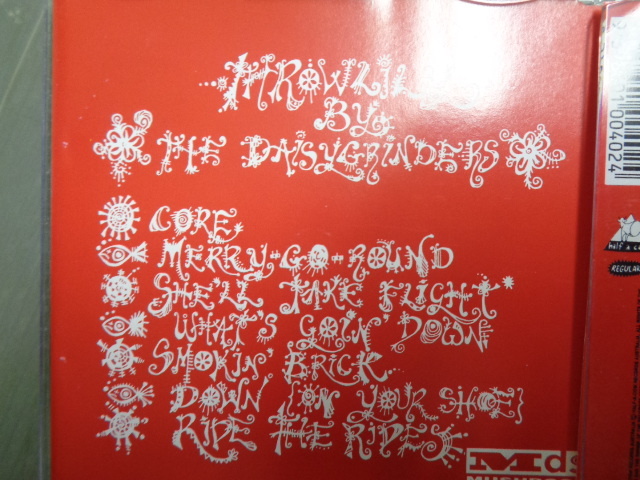 BY
THE DAISYGRINDERS
CORE,
MERRY-GO-ROUND
SHE'LL TAKE FLIGHT
WHAT'S GOIN' DOWN
SMOKIN' BRICK
DOWN {ON YOUR SHOT}
RIDE THE RIDES
Mds
004024
half a
REGULAR